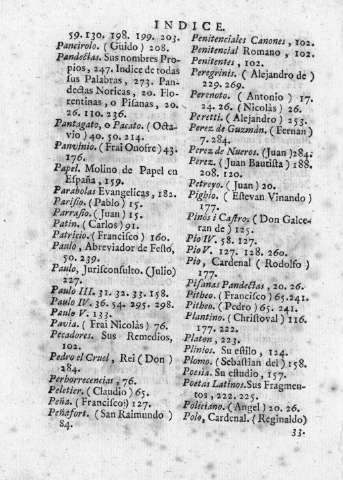 INDICE.
59. 130. 198. 199. 203.
Pancirolo. (Guido) 208.
Pandectas. Sus nombres Pro-
pios, 247. Indice de todas
sus Palabras, 273. Pan-
dectas Noricas, 20. Flo-
rentinas, o Pisanas, 20.
26. 110. 236.
Pantagato, o Pacato. (Octa-
vio) 40. 50. 214.
Panvinio. (Frai Onofre) 43.
176.
Papel. Molino de Papel en
España, 159.
Parabolas Evangelicas, 182.
Parisio. (Pablo) 15.
Parrasio. (Juan) 15.
Patin. (Carlos) 91.
Patricio. (Francisco) 160.
Paulo, Abreviador de Festo,
50. 239.
Paulo, Jurisconsulto. (Julio)
227.
Paulo III. 31. 32. 33. 158.
Paulo IV. 36. 54. 295. 298.
Paulo V. 133.
Pavia. (Frai Nicolàs) 76.
Pecadores. Sus Remedios,
102.
Pedro el Cruel, Rei (Don)
284.
Perhorrecencias, 76.
Peletier. (Claudio) 65.
Peña. (Francisco) 127.
Peñafort. (San Raimundo)
84.
Penitenciales Canones, 102.
Penitencial Romano, 102.
Penitentes, 102.
Peregrinis. (Alejandro de)
229. 269.
Perenoto. (Antonio) 17.
24. 26. (Nicolàs) 26.
Peretti. (Alejandro) 253.
Perez de Guzmàn. (Fernan)
7. 284.
Perez de Nueros. (Juan) 284.
Perez. (Juan Bautista) 188.
208. 120.
Petreyo. (Juan) 20.
Pighio. (Estevan Vinando)
177.
Pinòs i Castro, (Don Galce-
ran de) 125.
Pio IV. 58. 127.
Pio V. 127. 128. 260.
Pio, Cardenal (Rodolfo)
177.
Pisanas Pandectas, 20. 26.
Pitheo. (Francisco) 65. 241.
Pitheo. (Pedro) 65. 241.
Plantino. (Christoval) 116.
177. 222.
Platon, 223.
Plinios. Su estilo, 124.
Plomo. (Sebastian del) 158.
Poesia. Su estudio, 157.
Poetas Latinos. Sus Fragmen-
tos, 222. 225.
Policiano. (Angel) 20. 26.
Polo, Cardenal. (Reginaldo)
33.